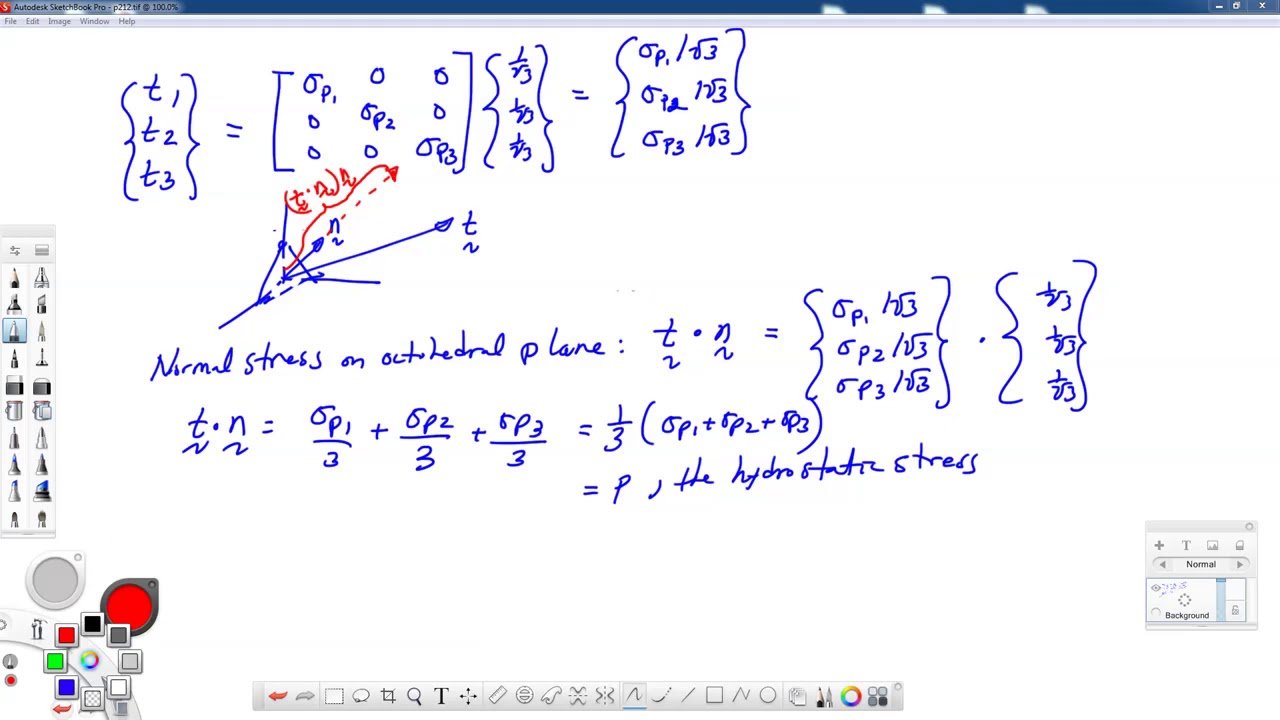 Autodesk SketchBook Pro - p212.tif @ 100.0%
File Edit Image Window Help
{t1 t2 t3} = [σp1 0 0; 0 σp2 0; 0 0 σp3] {1/√3 1/√3 1/√3} = {σp1/√3 σp2/√3 σp3/√3}
(t · n) n
n
t
Normal stress on octohedral plane: t · n = {σp1/√3 σp2/√3 σp3/√3} · {1/√3 1/√3 1/√3}
t · n = σp1/3 + σp2/3 + σp3/3 = 1/3 (σp1 + σp2 + σp3)
= p, the hydrostatic stress
T
Normal
Background
T